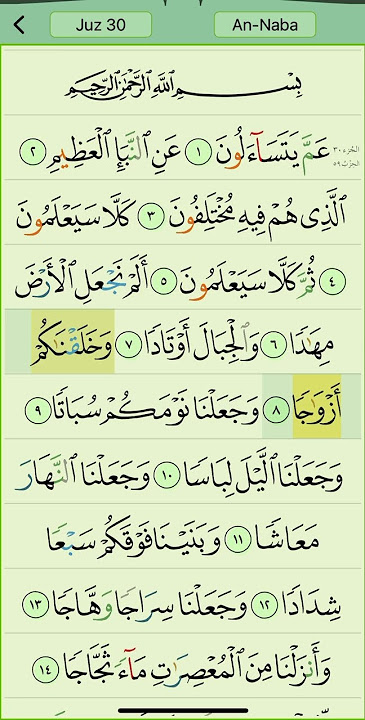 Juz 30 An-Naba
بِسْمِ ٱللَّهِ ٱلرَّحْمَٰنِ ٱلرَّحِيمِ
عَمَّ يَتَسَآءَلُونَ ١ عَنِ ٱلنَّبَإِ ٱلْعَظِيمِ ٢
الجزء ٣٠
الحزب ٥٩
ٱلَّذِى هُمْ فِيهِ مُخْتَلِفُونَ ٣ كَلَّا سَيَعْلَمُونَ
٤ ثُمَّ كَلَّا سَيَعْلَمُونَ ٥ أَلَمْ نَجْعَلِ ٱلْأَرْضَ
مِهَٰدًا ٦ وَٱلْجِبَالَ أَوْتَادًا ٧ وَخَلَقْنَٰكُمْ
أَزْوَٰجًا ٨ وَجَعَلْنَا نَوْمَكُمْ سُبَاتًا ٩
وَجَعَلْنَا ٱلَّيْلَ لِبَاسًا ١٠ وَجَعَلْنَا ٱلنَّهَارَ
مَعَاشًا ١١ وَبَنَيْنَا فَوْقَكُمْ سَبْعًا
شِدَادًا ١٢ وَجَعَلْنَا سِرَاجًا وَهَّاجًا ١٣
وَأَنزَلْنَا مِنَ ٱلْمُعْصِرَٰتِ مَآءً ثَجَّاجًا ١٤